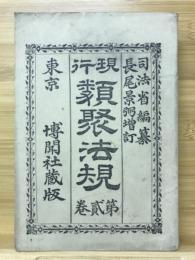 司法省編纂
長尾景弼増訂
現行類聚法規
第貳卷
東京
博聞社蔵版